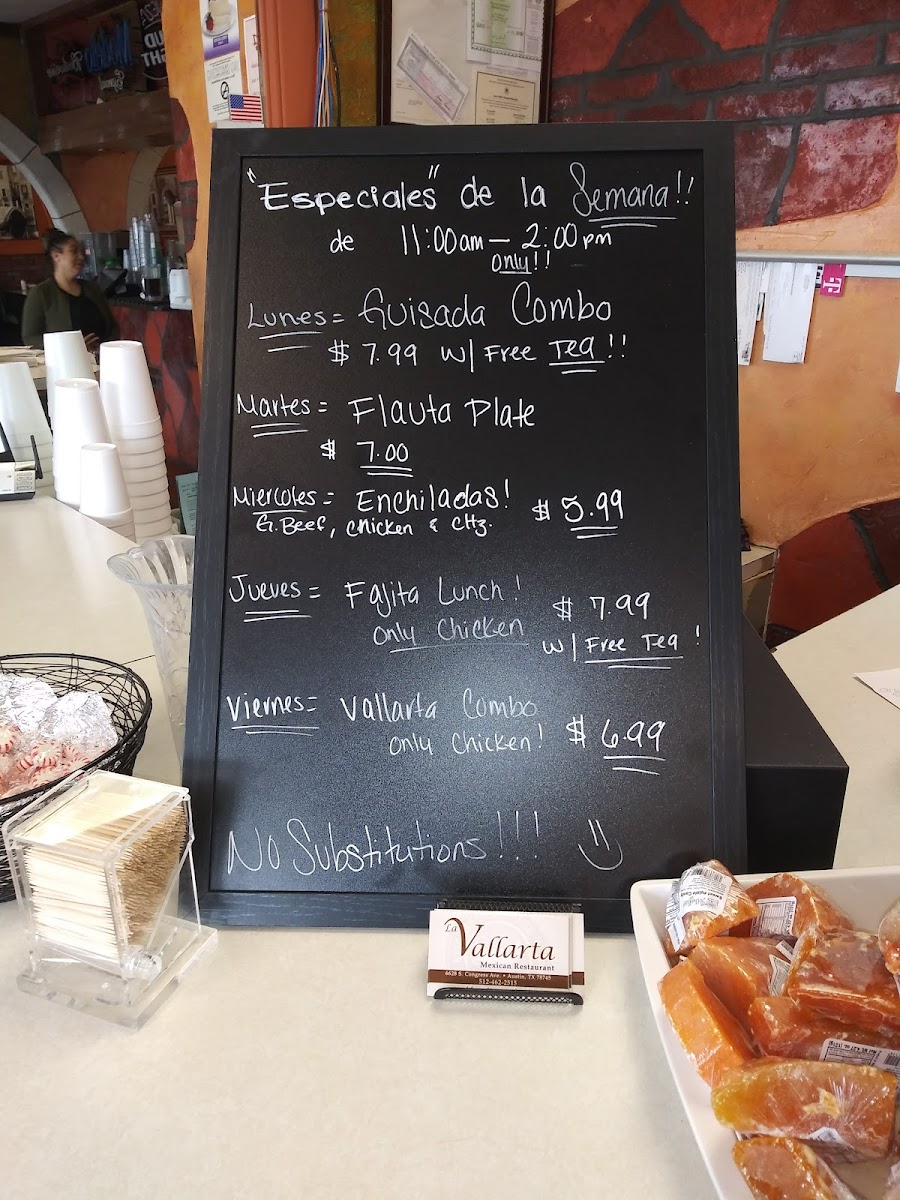 "Especiales" de la Semana!!
de 11:00am - 2:00pm
only!!
Lunes = Guisada Combo
$ 7.99 w/ Free Tea!!
Martes = Flauta Plate
$ 7.00
Miercoles = Enchiladas! $ 5.99
G. Beef, chicken & chz.
Jueves = Fajita Lunch! $ 7.99
only chicken w/ Free Tea!
Viernes = Vallarta Combo $ 6.99
only chicken!
No Substitutions!!! =)
La Vallarta
Mexican Restaurant
6628 S. Congress Ave. • Austin, TX 78745
512-462-2515